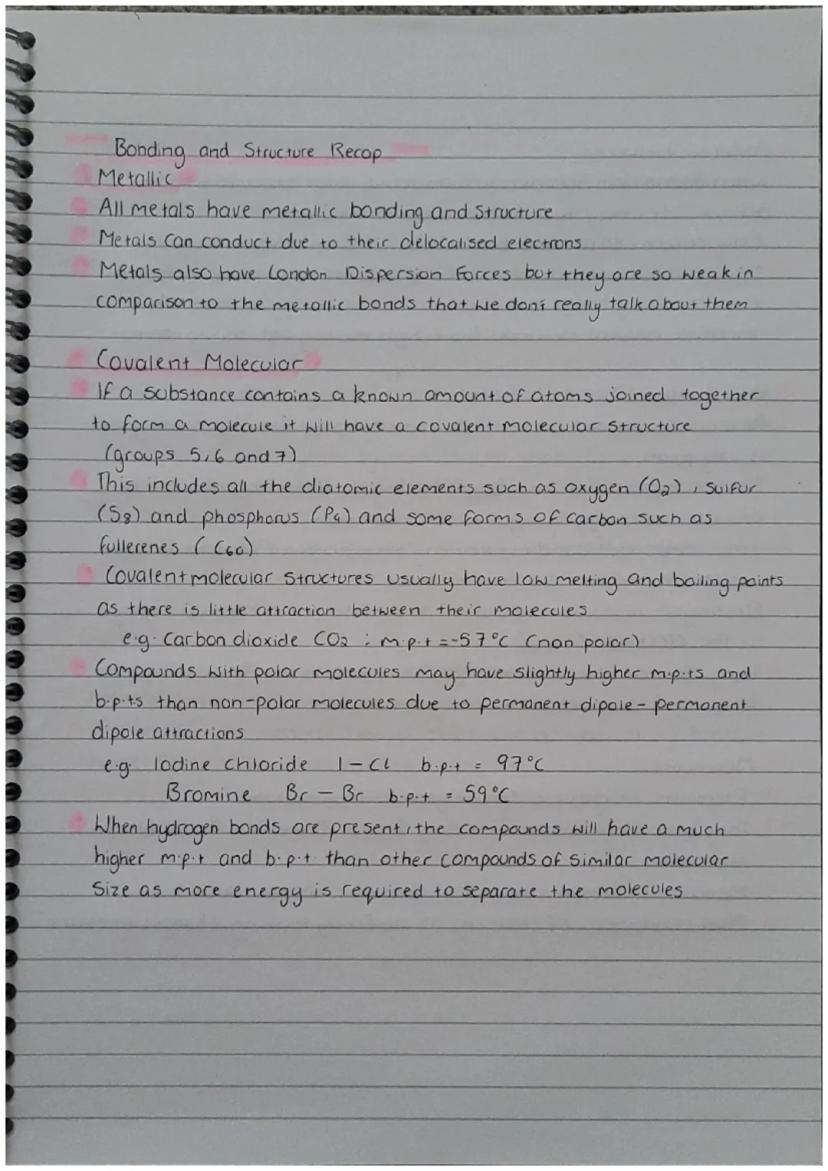 Bonding and Structure Recap
Metallic
All metals have metallic bonding and structure
Metals can conduct due to their delocalised electrons
Metals also have London Dispersion Forces but they are so weak in
comparison to the metallic bonds that we don't really talk about them
Covalent Molecular
If a substance contains a known amount of atoms joined together
to form a molecule it will have a covalent molecular structure
(groups 5,6 and 7)
This includes all the diatomic elements such as oxygen (O₂), sulfur
(S₈) and phosphorus (P₄) and some forms of carbon such as
fullerenes (C₆₀)
Covalent molecular structures usually have low melting and boiling points
as there is little attraction between their molecules
e.g. Carbon dioxide CO₂ : m.p.t = -57°C (non polar)
Compounds with polar molecules may have slightly higher m.p.ts and
b.p.ts than non-polar molecules due to permanent dipole - permanent
dipole attractions
e.g. Iodine chloride I - Cl b.p.t = 97°C
Bromine Br - Br b.p.t = 59°C
When hydrogen bonds are present, the compounds will have a much
higher m.p.t and b.p.t. than other compounds of similar molecular
size as more energy is required to separate the molecules